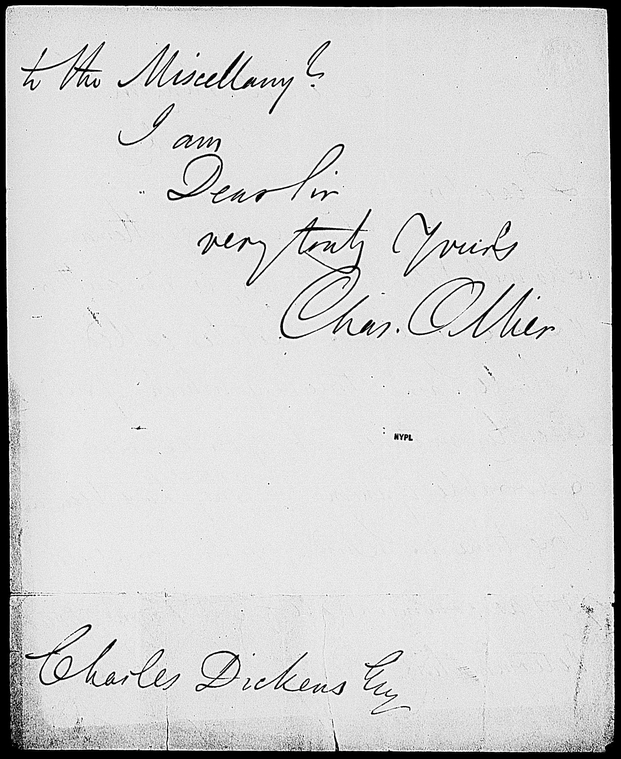 to the Miscellany?
I am
Dear Sir
very truly Yours
Chas. Ollier
NYPL
Charles Dickens Esq